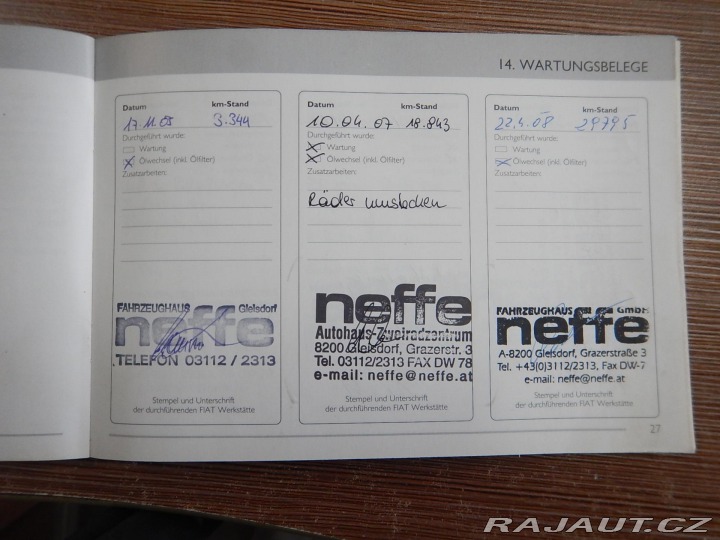 14. WARTUNGSBELEGE
Datum km-Stand
17.11.05 3.344
Durchgeführt wurde:
Wartung
Ölwechsel (inkl. Ölfilter)
Zusatzarbeiten:
FAHRZEUGHAUS Gleisdorf
neffe
TELEFON 03112 / 2313
Stempel und Unterschrift
der durchführenden FIAT Werkstätte
Datum km-Stand
10.04.07 18.843
Durchgeführt wurde:
Wartung
Ölwechsel (inkl. Ölfilter)
Zusatzarbeiten:
Räder umstecken
neffe
Autohaus-Zweiradzentrum
8200 Gleisdorf, Grazerstr. 3
Tel. 03112/2313 FAX DW 78
e-mail: neffe@neffe.at
Stempel und Unterschrift
der durchführenden FIAT Werkstätte
Datum km-Stand
22.4.08 29795
Durchgeführt wurde:
Wartung
Ölwechsel (inkl. Ölfilter)
Zusatzarbeiten:
FAHRZEUGHAUS GmbH
neffe
A-8200 Gleisdorf, Grazerstraße 3
Tel. +43(0)3112/2313, Fax DW-7
e-mail: neffe@neffe.at
Stempel und Unterschrift
der durchführenden FIAT Werkstätte
27
RAJAUT.CZ